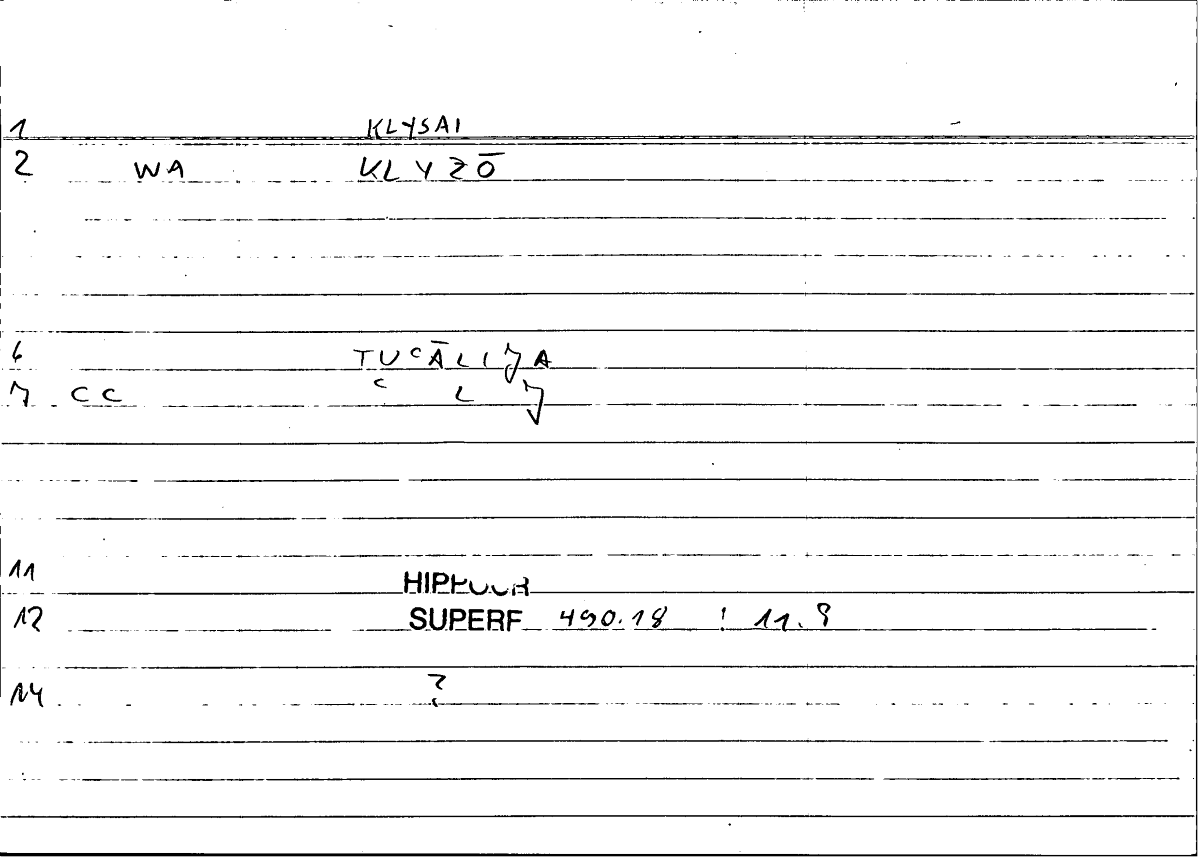 1 KLYSAI
2 WA KLYZŌ
6 TUᶜĀLIJA
7 CC ᶜ L J
11 HIPPOCR
12 SUPERF 490.18 ! 11.8
14 ?